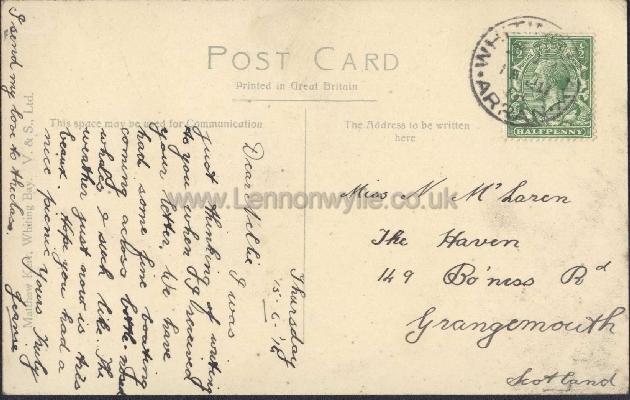 POST CARD
Printed in Great Britain
This space may be used for Communication
The Address to be written
here
WHITI
ARRAN
HALFPENNY
www.Lennonwylie.co.uk
Matthew Kerr, Whiting Bay. V. & S., Ltd.
Thursday
Dear Nellie
I was
just thinking of writing
to you when I received
your letter. We have
had some fine boating
coming across both
whales & such like. The
weather just now is très
beaux. Hope you had a
nice picnic
Yours truly
Jeanne
I send my love to the class.
Miss N. McLaren
The Haven
149 Bo'ness Rd
Grangemouth
Scotland